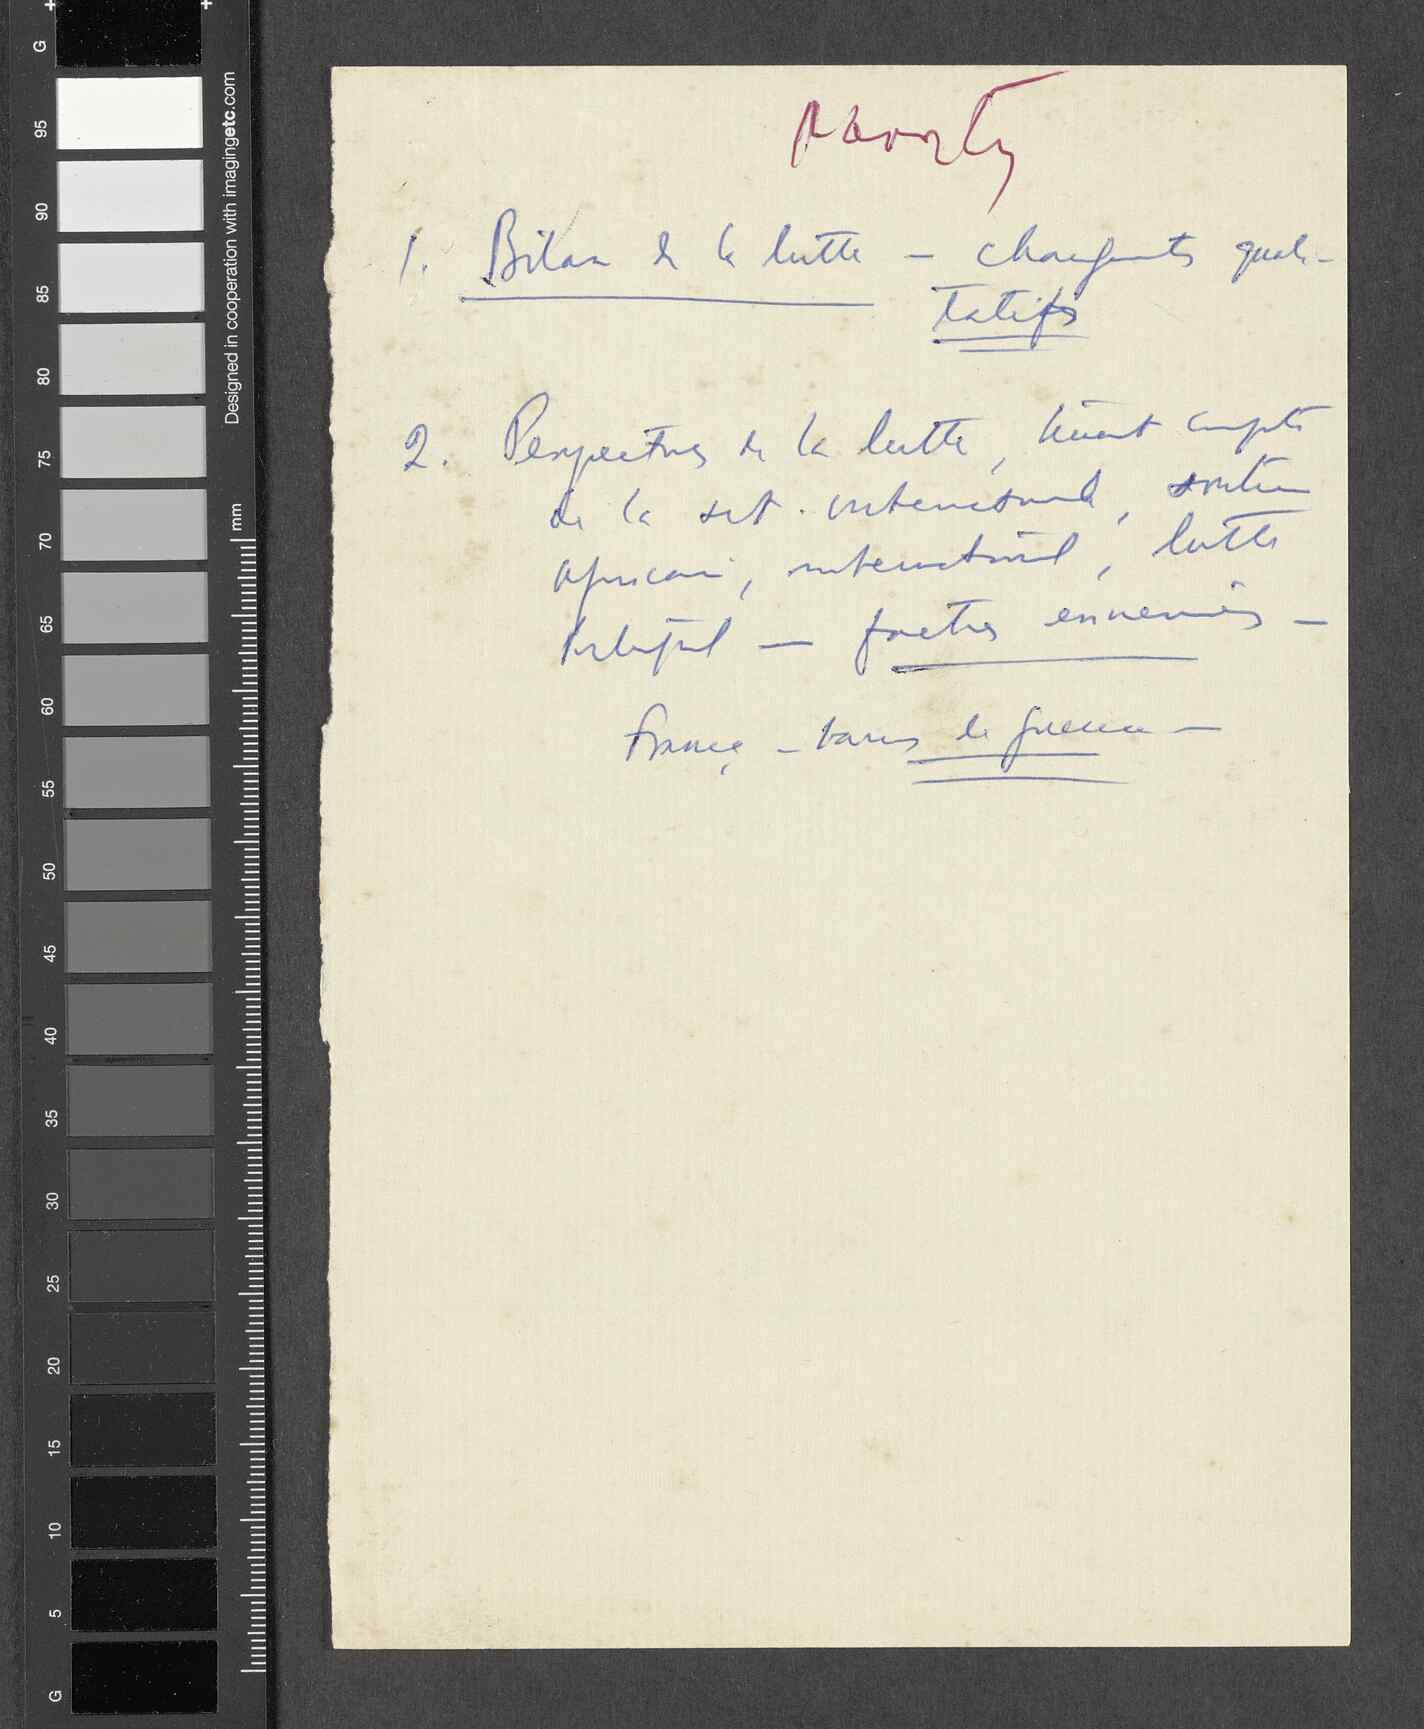 1. Bilan de la lutte – changements quali-
tatifs
2. Perspectives de la lutte, tenant compte
de la sit. internationale, soutien
africain, international, lutte
Portugal – forces ennemies –
France – de guerre –
G
95
90
85
80
75
70
65
60
55
50
45
40
35
30
25
20
15
10
5
G
Designed in cooperation with imagingetc.com
mm